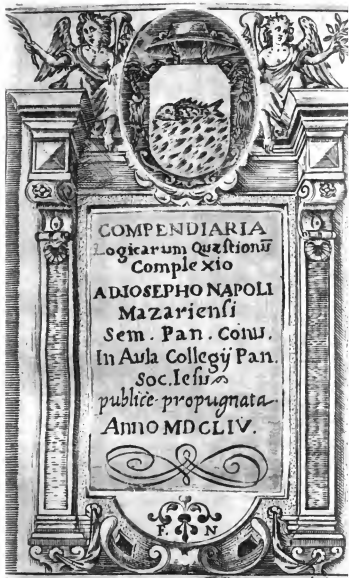 COMPENDIARIA
Logicarum Quæstionũ
Complexio
A D. IOSEPHO NAPOLI
Mazariensi
Sem. Pan. Conu.
In Aula Collegij Pan.
Soc. Iesu
publicè propugnata
Anno MDCLIV.
F. N